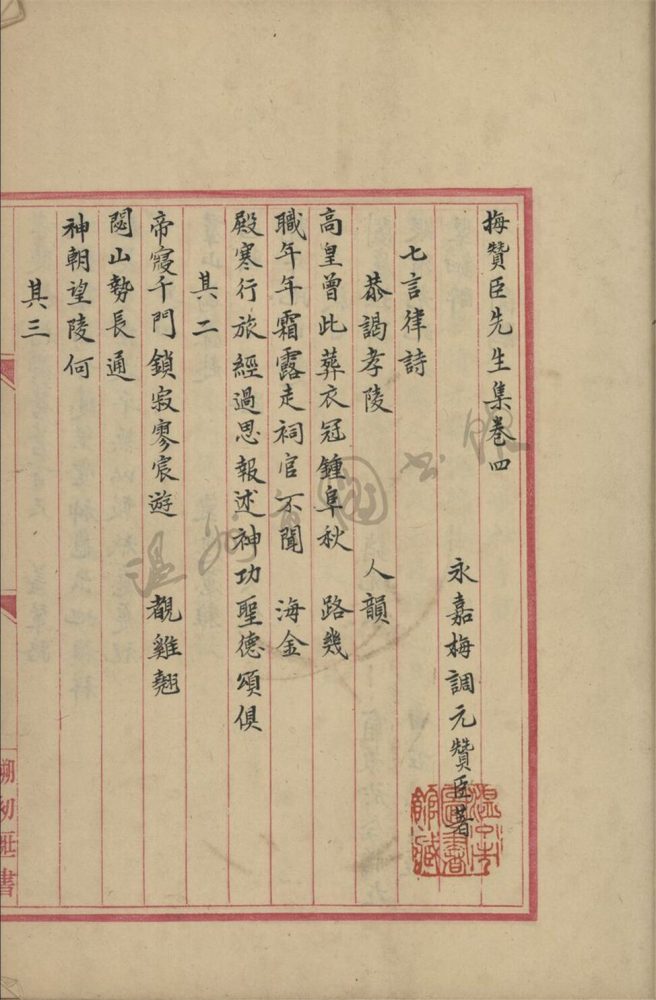 梅贊臣先生集卷四
永嘉梅調元贊臣著
七言律詩
恭謁孝陵 人韻
高皇曾此葬衣冠鍾阜秋 路幾
職年年霜露走祠官不聞 海金
殿寒行旅經過思報述神功聖德頌俱
其二
帝寢千門鎖寂寥宸遊 覩雞翹
閟山勢長通
神朝望陵何
其三
溫州市圖書館藏
初 書
溫州市圖書館